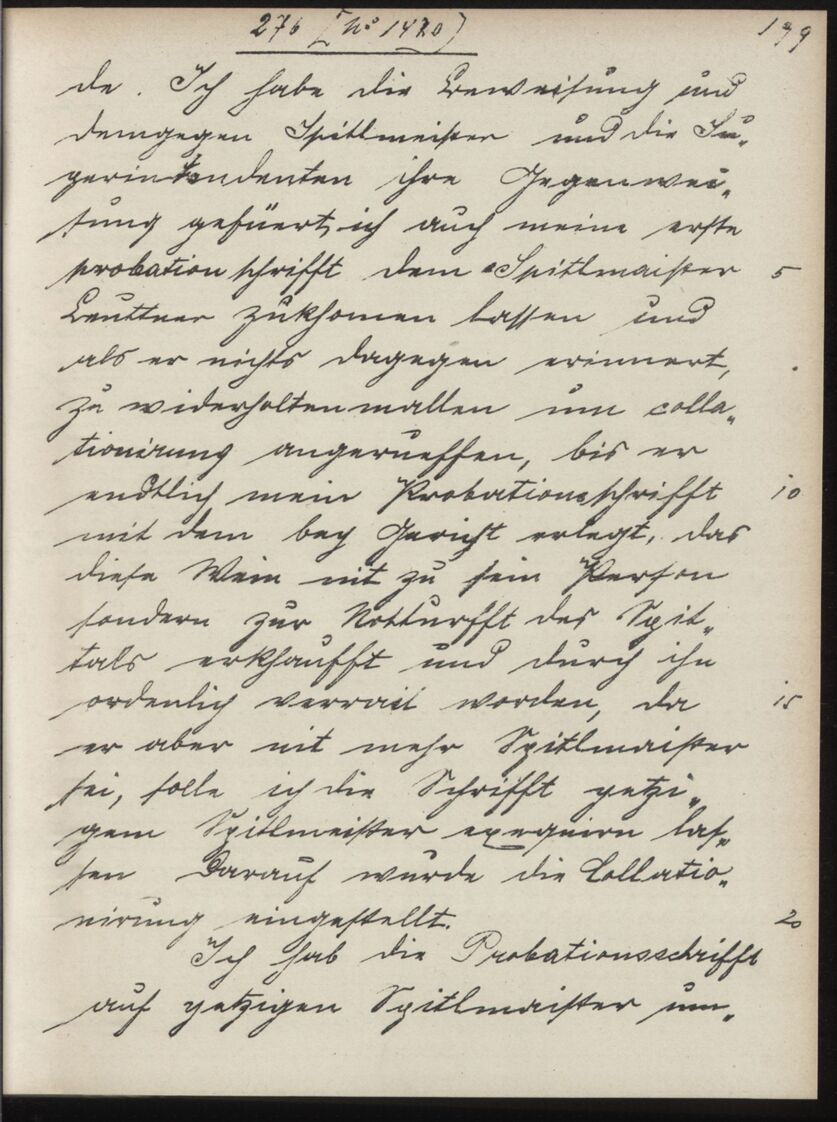 276 [No 1420)
199
de. Ich habe die Beweisung und
demgegen Spitlmeister und die Su„
perintendenten ihre Gegenwei„
sung gefüert, ich auch meine erste
probation schrifft dem Spitlmaister 5
Leuttner zukhomen lassen und
als er nichts dagegen erinnert,
zu widerholtenmallen um colla„
tionirung angerueffen, bis er
endtlich mein Probationsschrifft 10
mit dem bey Gericht erlegt, das
diese Wein nit zu sein Person
sondern zur Notturfft des Spit„
tals erkhaufft und durch ihn
ordenlich verrait worden, da 15
er aber nit mehr Spitlmaister
sei, solle ich die Schrifft yetzi„
gem Spitlmeister exequirn las„
sen Darauf wurde die Collatio„
nirung eingestellt. 20
Ich hab die Probationsschrifft
auf yetzigen Spitlmaister um„